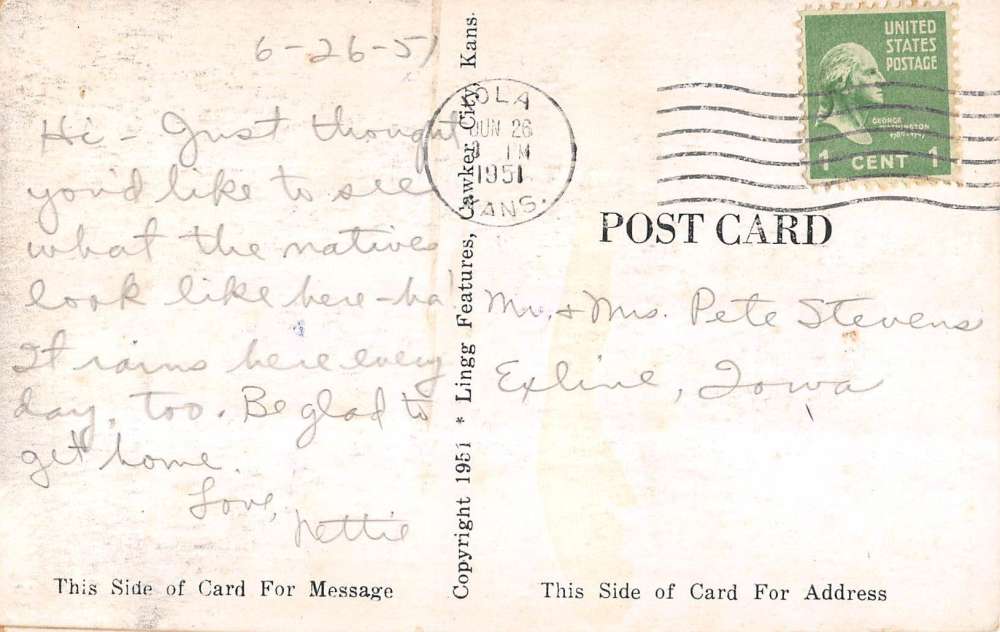 6-26-51
Hi - Just thought
you'd like to see
what the natives
look like here - ha!
It rains here every
day, too. Be glad to
get home.
Love,
Nettie
This Side of Card For Message
Copyright 1951 * Lingg Features, Cawker City, Kans.
OLA
JUN 26
1951
KANS.
UNITED
STATES
POSTAGE
GEORGE
WASHINGTON
1 CENT 1
POST CARD
Mr. & Mrs. Pete Stevens
Exline, Iowa
This Side of Card For Address